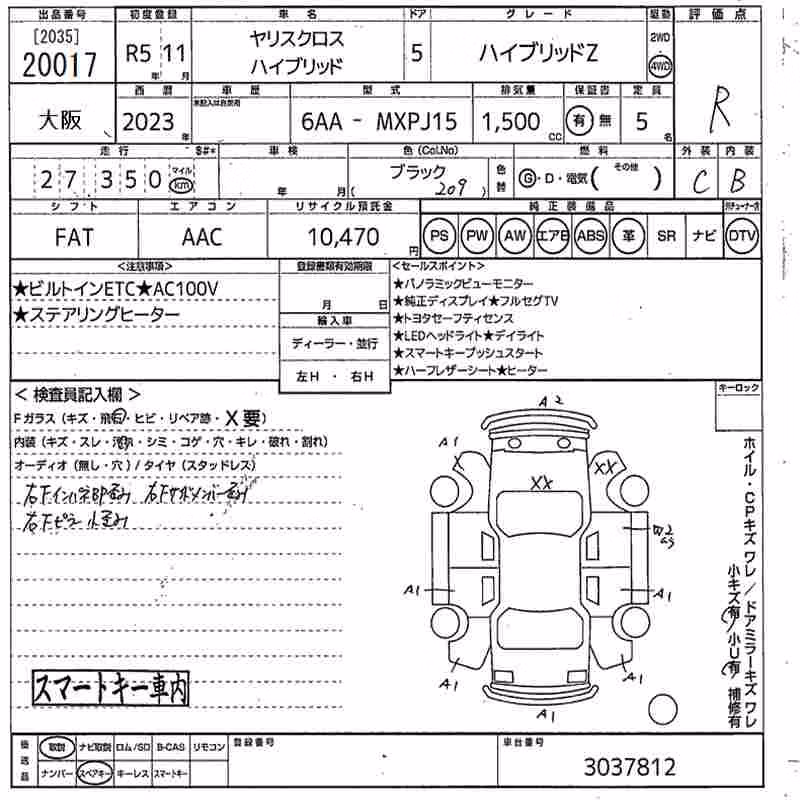 出品番号 初度登録 車名 ドア グレード 駆動 評価点
[2035]
20017
R5年 11月
ヤリスクロス
ハイブリッド
5
ハイブリッドZ
2WD
4WD
R
西暦 車歴 型式 排気量 保証書 定員
大阪
2023年
未記入は自家用
6AA - MXPJ15
1,500CC
有 無
5名
走行 $#* 車検 色(Col.No) 燃料 外装 内装
27350 マイル km
年 月
ブラック
(209)
色替
G・D・電気( その他 )
C B
シフト エアコン リサイクル預託金 純正装備品
FAT AAC 10,470円
PS PW AW エアB ABS 革 SR ナビ DTV
<注意事項> 登録書類有効期限 <セールスポイント>
★ビルトインETC★AC100V
★ステアリングヒーター
月 日
輸入車
ディーラー・並行
左H・右H
★パノラミックビューモニター
★純正ディスプレイ★フルセグTV
★トヨタセーフティセンス
★LEDヘッドライト★デイライト
★スマートキープッシュスタート
★ハーフレザーシート★ヒーター
キーロック
<検査員記入欄>
Fガラス(キズ・飛石・ヒビ・リペア跡・X要)
内装(キズ・スレ・汚れ・シミ・コゲ・穴・キレ・破れ・割れ)
オーディオ(無し・穴)/タイヤ(スタッドレス)
右Fインナー部歪み 右Fサイドメンバー歪み
右Fピラー小歪み
A2
A1
XX
XX
W2
A1
A1
A1
A1
A1
ホイル・CPキズワレ/ドアミラーキズワレ
小キズ有/小U有/補修有
スマートキー車内
後送品 取説 ナビ取説 ロム/SD B-CAS リモコン
ナンバー スペアキー キーレス スマートキー
登録番号
車台番号
3037812